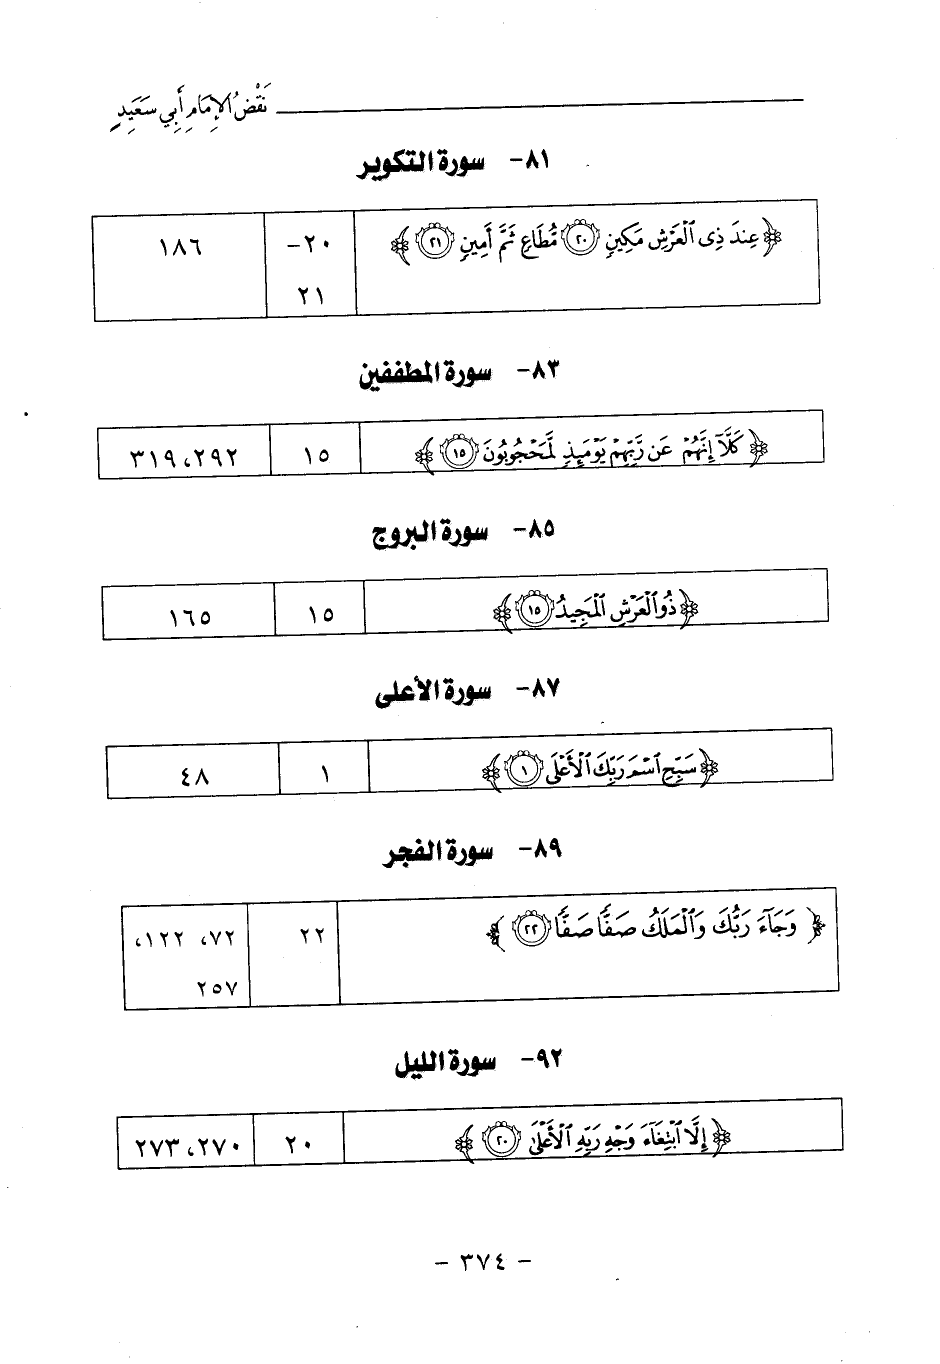 نَقْضُ الإِمَامِ أَبِي سَعَيِدٍ
٨١- سورة التكوير
﴿عِندَ ذِى ٱلْعَرْشِ مَكِينٍ ٢٠ مُّطَاعٍ ثَمَّ أَمِينٍ ٢١﴾ ٢٠- ١٨٦
٢١
٨٣- سورة المطففين
﴿كَلَّآ إِنَّهُمْ عَن رَّبِّهِمْ يَوْمَئِذٍ لَّمَحْجُوبُونَ ١٥﴾ ١٥ ٢٩٢، ٣١٩
٨٥- سورة البروج
﴿ذُو ٱلْعَرْشِ ٱلْمَجِيدُ ١٥﴾ ١٥ ١٦٥
٨٧- سورة الأعلى
﴿سَبِّحِ ٱسْمَ رَبِّكَ ٱلْأَعْلَى ١﴾ ١ ٤٨
٨٩- سورة الفجر
﴿وَجَآءَ رَبُّكَ وَٱلْمَلَكُ صَفًّا صَفًّا ٢٢﴾ ٢٢ ٧٢، ١٢٢،
٢٥٧
٩٢- سورة الليل
﴿إِلَّا ٱبْتِغَآءَ وَجْهِ رَبِّهِ ٱلْأَعْلَىٰ ٢٠﴾ ٢٠ ٢٧٠، ٢٧٣
- ٣٧٤ -